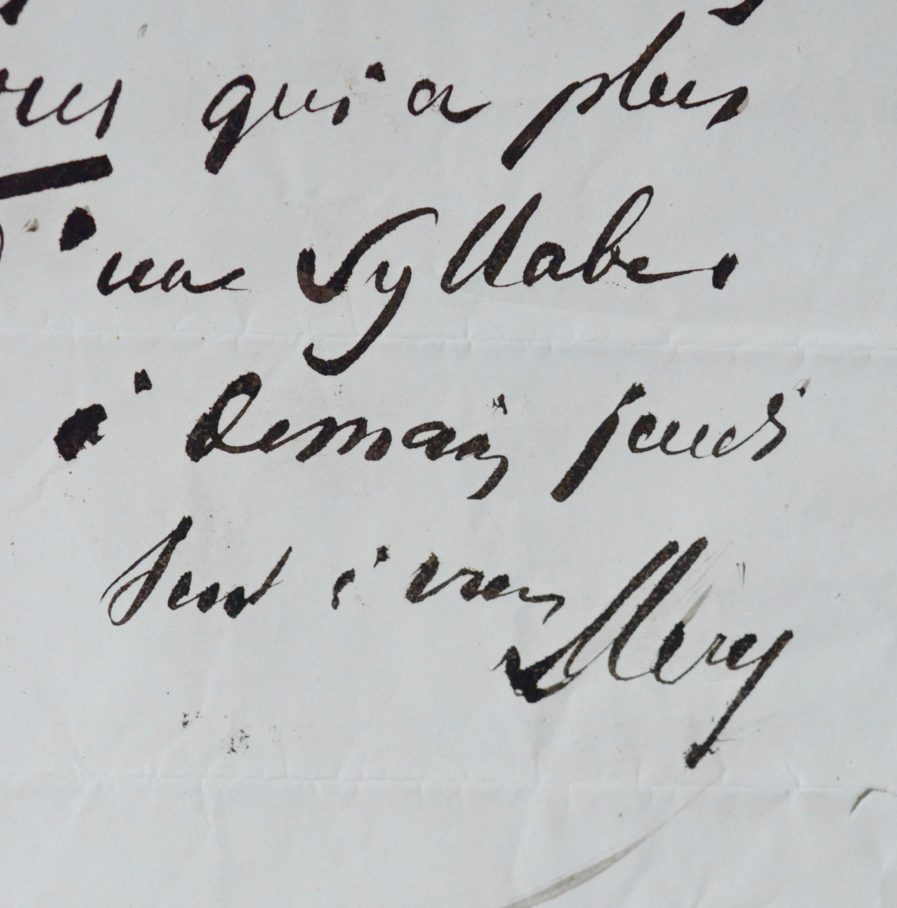 qui a plus
d'une syllabe.
à Demain jeudi
Tout à vous
Mery